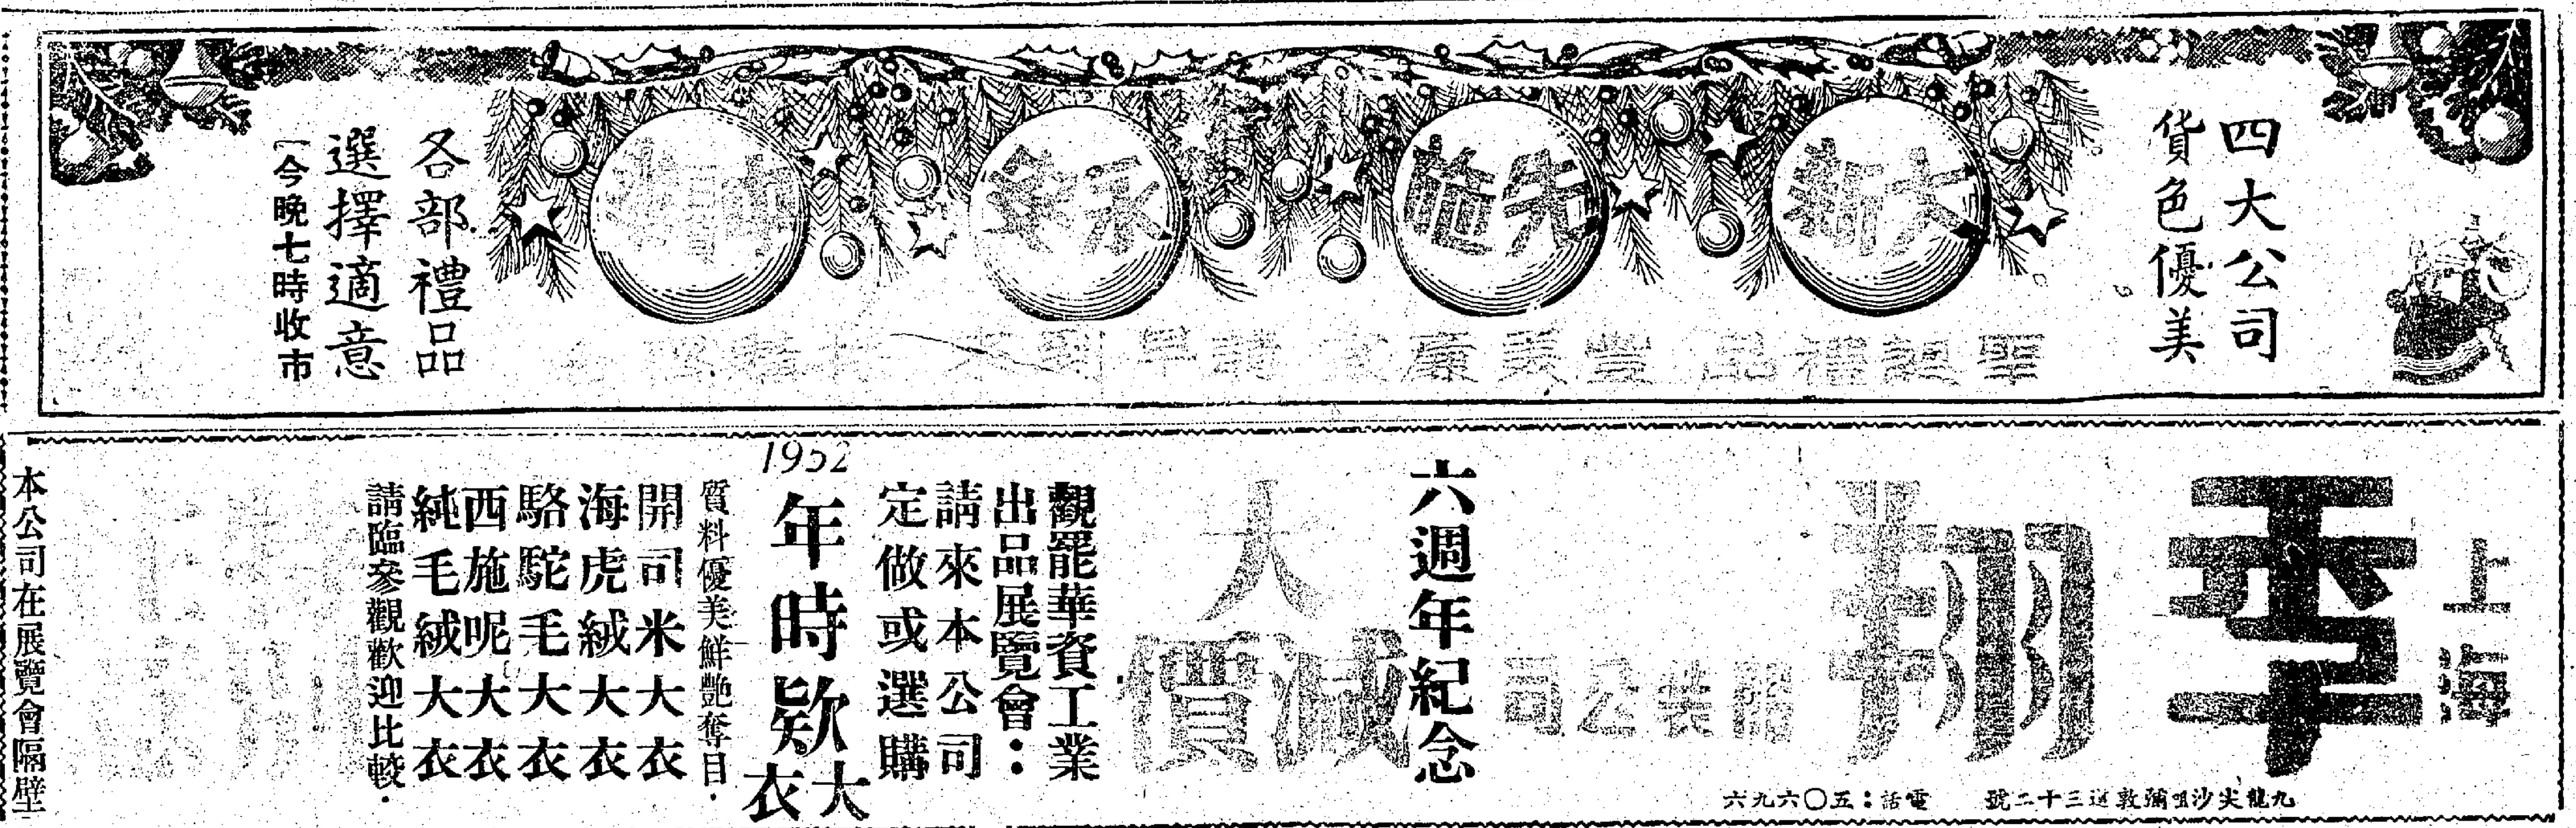 四大公司
貨色優美
大新
先施
永安
各部禮品
選擇適意
今晚七時收市
上海
翔
服裝公司
九龍尖沙咀彌敦道三十二號
電話：五〇六九六
六週年紀念
大減價
觀罷華資工業
出品展覽會：
請來本公司
定做或選購
1952
年時欵大衣
質料優美鮮艷奪目．
開司米大衣
海虎絨大衣
駱駝毛大衣
西施呢大衣
純毛絨大衣
請臨參觀歡迎比較．
本公司在展覽會隔壁